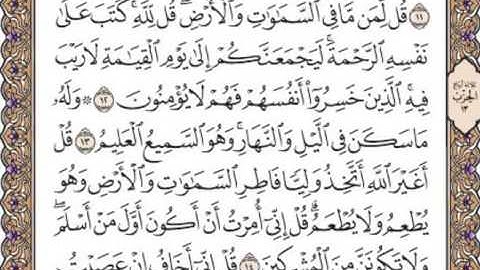 ١١ قُل لِّمَن مَّا فِى ٱلسَّمَٰوَٰتِ وَٱلْأَرْضِ ۖ قُل لِّلَّهِ ۚ كَتَبَ عَلَىٰ
نَفْسِهِ ٱلرَّحْمَةَ ۚ لَيَجْمَعَنَّكُمْ إِلَىٰ يَوْمِ ٱلْقِيَٰمَةِ لَا رَيْبَ
فِيهِ ۚ ٱلَّذِينَ خَسِرُوٓا۟ أَنفُسَهُمْ فَهُمْ لَا يُؤْمِنُونَ ١٢ ۞ وَلَهُۥ
مَا سَكَنَ فِى ٱلَّيْلِ وَٱلنَّهَارِ ۚ وَهُوَ ٱلسَّمِيعُ ٱلْعَلِيمُ ١٣ قُلْ
أَغَيْرَ ٱللَّهِ أَتَّخِذُ وَلِيًّا فَاطِرِ ٱلسَّمَٰوَٰتِ وَٱلْأَرْضِ وَهُوَ
يُطْعِمُ وَلَا يُطْعَمُ ۗ قُلْ إِنِّىٓ أُمِرْتُ أَنْ أَكُونَ أَوَّلَ مَنْ أَسْلَمَ ۖ
وَلَا تَكُونَنَّ مِنَ ٱلْمُشْرِكِينَ ١٤ قُلْ إِنِّىٓ أَخَافُ إِنْ عَصَيْتُ
الحزب
١٣